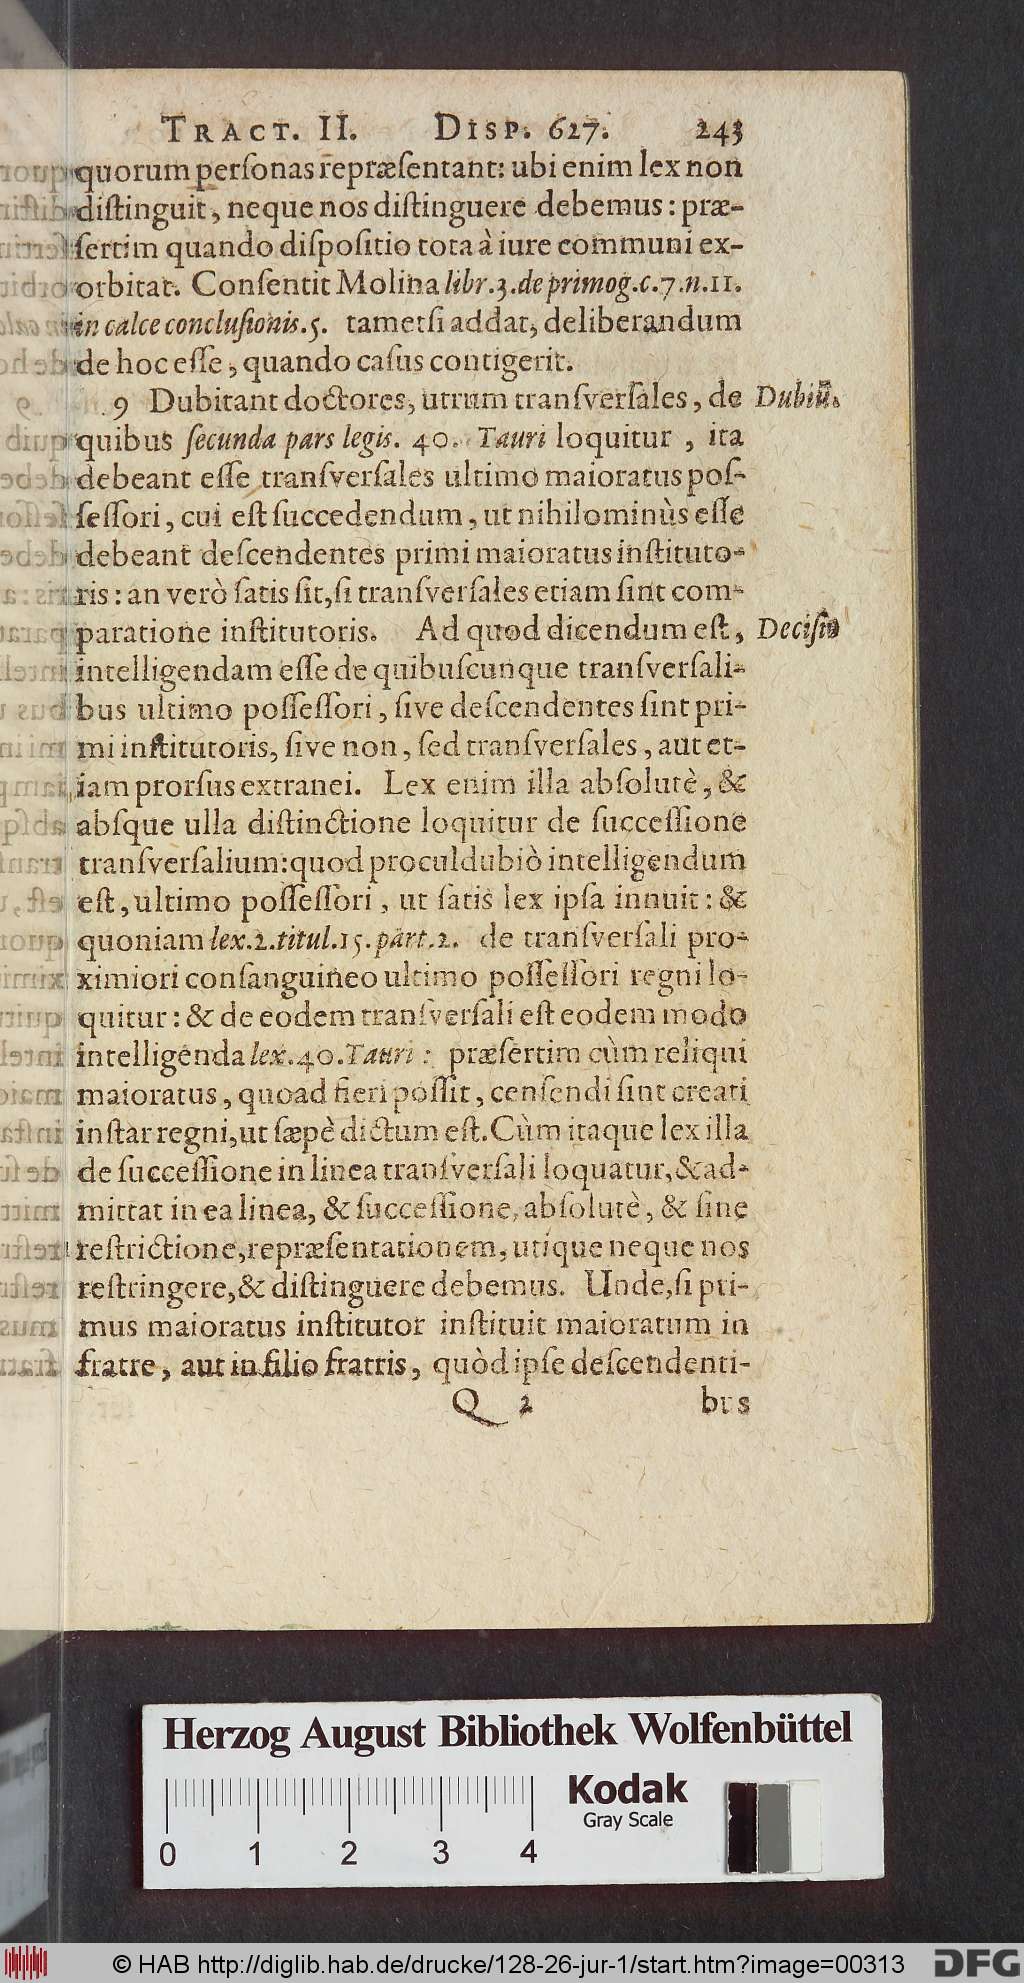 TRACT. II. DISP. 627. 243
quorum perſonas repræſentant: ubi enim lex non
diſtinguit, neque nos diſtinguere debemus: præ-
ſertim quando diſpoſitio tota à iure communi ex-
orbitat. Conſentit Molina libr.3.de primog.c.7.n.11.
in calce concluſionis.5. tametſi addat, deliberandum
de hoc eſſe, quando caſus contigerit.
9 Dubitant doctores, utrum tranſverſales, de Dubiū.
quibus ſecunda pars legis. 40. Tauri loquitur, ita
debeant eſſe tranſverſales ultimo maioratus poſ-
ſeſſori, cui eſt ſuccedendum, ut nihilominùs eſſe
debeant deſcendentes primi maioratus inſtituto-
ris: an verò ſatis ſit, ſi tranſverſales etiam ſint com-
paratione inſtitutoris. Ad quod dicendum eſt, Deciſio
intelligendam eſſe de quibuſcunque tranſverſali-
bus ultimo poſſeſſori, ſive deſcendentes ſint pri-
mi inſtitutoris, ſive non, ſed tranſverſales, aut et-
iam prorſus extranei. Lex enim illa abſolutè, &
abſque ulla diſtinctione loquitur de ſucceſſione
tranſverſalium: quod proculdubiò intelligendum
eſt, ultimo poſſeſſori, ut ſatis lex ipſa innuit: &
quoniam lex.2.titul.15.part.2. de tranſverſali pro-
ximiori conſanguineo ultimo poſſeſſori regni lo-
quitur: & de eodem tranſverſali eſt eodem modo
intelligenda lex.40.Tauri: præſertim cùm reliqui
maioratus, quoad fieri poſſit, cenſendi ſint creati
inſtar regni, ut ſæpè dictum eſt. Cùm itaque lex illa
de ſucceſſione in linea tranſverſali loquatur, & ad-
mittat in ea linea, & ſucceſſione, abſolutè, & ſine
reſtrictione, repræſentationem, utique neque nos
reſtringere, & diſtinguere debemus. Unde, ſi pri-
mus maioratus inſtitutor inſtituit maioratum in
fratre, aut in filio fratris, quòd ipſe deſcendenti-
Q 2 bus
Herzog August Bibliothek Wolfenbüttel
Kodak
Gray Scale
0 1 2 3 4
© HAB http://diglib.hab.de/drucke/128-26-jur-1/start.htm?image=00313 DFG